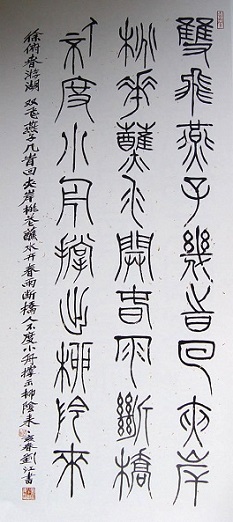 雙飛燕子幾旹回夾岸
桃華蘸水開春雨斷橋
人不度小舟撐出柳侌來
徐俯春游湖 双飛燕子几旹回夾岸桃花蘸水开春雨断橋人不度小舟撑出柳陰来 春劉江書